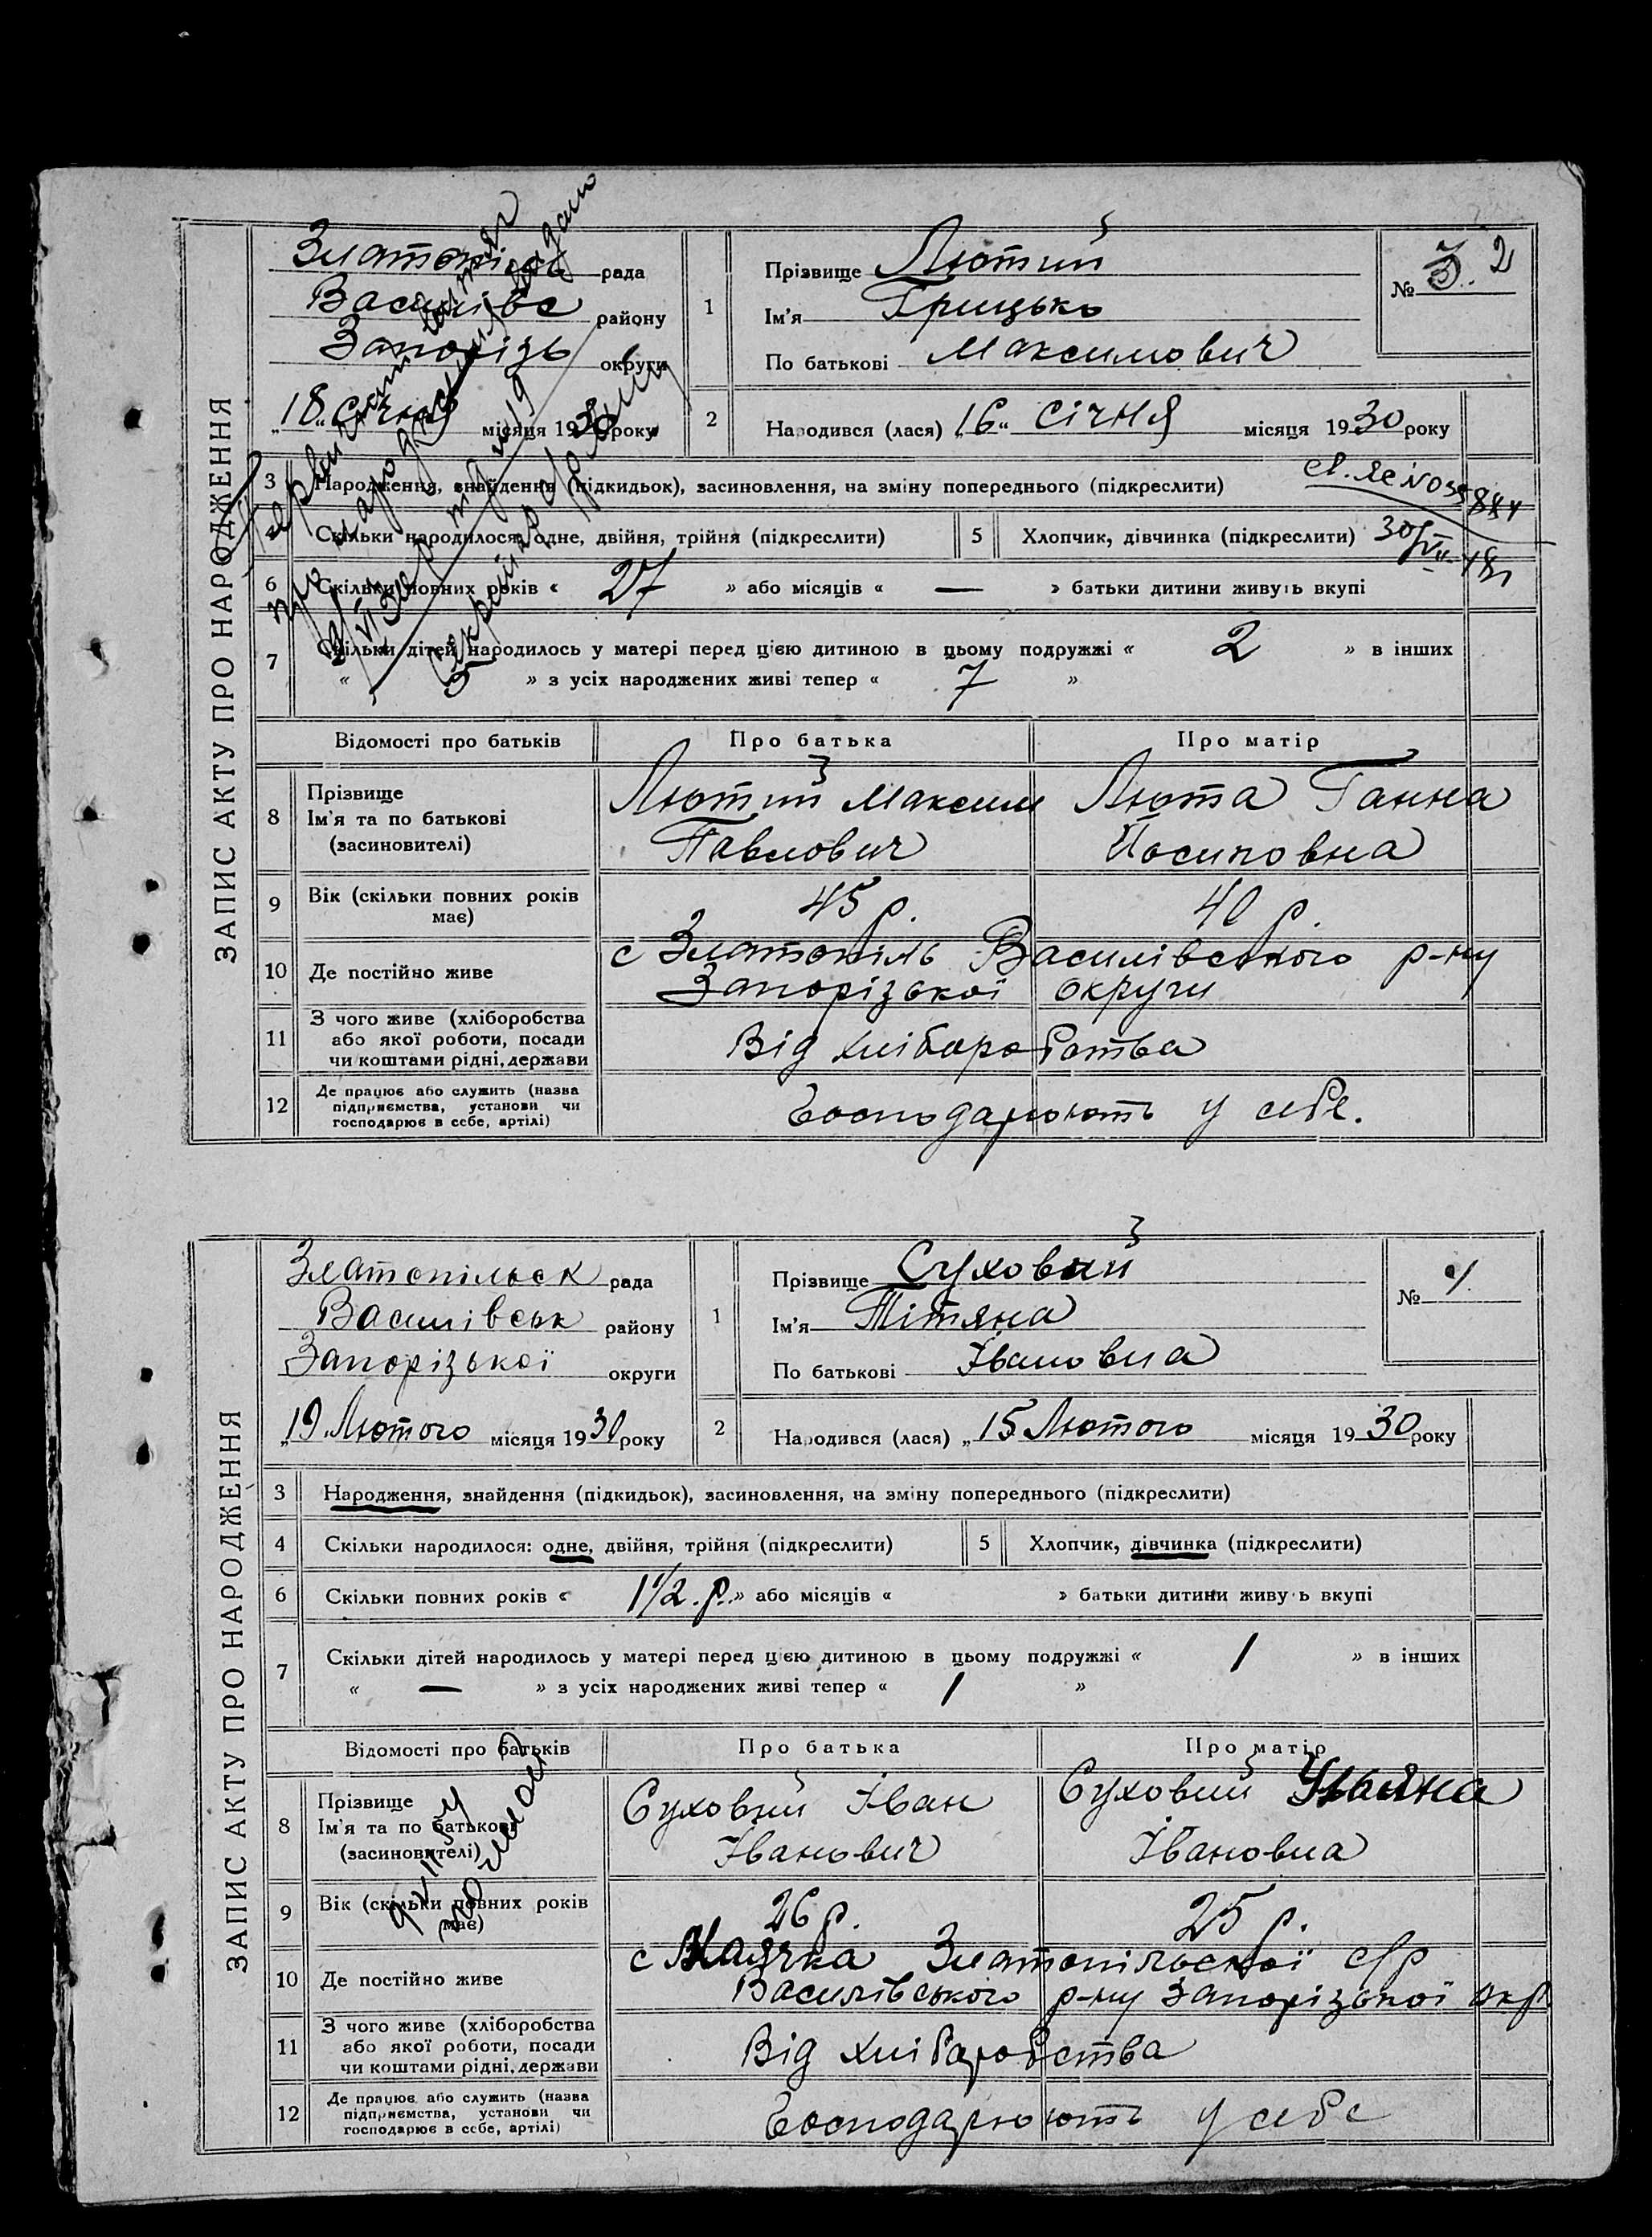 ЗАПИС АКТУ ПРО НАРОДЖЕННЯ
Златопіль рада
Василівс району
Запорізь округи
„18„ січня місяця 1930 року
1 Прізвище Лютий
Ім'я Грицько
По батькові Максимович
№ 2
2 Народився (лася) „16„ січня місяця 1930 року
3 Народження, знайдення (підкидьок), засиновлення, на зміну попереднього (підкреслити)
Скільки народилося: одне, двійня, трійня (підкреслити)
5 Хлопчик, дівчинка (підкреслити)
6 Скільки повних років « 27 » або місяців « — » батьки дитини живуть вкупі
7 Скільки дітей народилось у матері перед цією дитиною в цьому подружжі « 2 » в інших
« 5 » з усіх народжених живі тепер « 7 »
Відомості про батьків Про батька Про матір
8 Прізвище
Ім'я та по батькові
(засиновителі)
Лютий Максим
Павлович
Люта Ганна
Йосиповна
9 Вік (скільки повних років
має)
45 р. 40 р.
10 Де постійно живе
с Златопіль Василівського р-ну
Запорізької округи
11 З чого живе (хліборобства
або якої роботи, посади
чи коштами рідні, держави
Від хліборобства
12 Де працює або служить (назва
підприємства, установи чи
господарює в себе, артілі)
Господарюють у себе.
ЗАПИС АКТУ ПРО НАРОДЖЕННЯ
Златопільськ рада
Василівськ району
Запорізької округи
„19„ Лютого місяця 1930 року
1 Прізвище Суховий
Ім'я Тітяна
По батькові Івановна
№
2 Народився (лася) „15 Лютого місяця 1930 року
3 Народження, знайдення (підкидьок), засиновлення, на зміну попереднього (підкреслити)
4 Скільки народилося: одне, двійня, трійня (підкреслити)
5 Хлопчик, дівчинка (підкреслити)
6 Скільки повних років « 1 1/2 р. » або місяців « » батьки дитини живуть вкупі
7 Скільки дітей народилось у матері перед цією дитиною в цьому подружжі « 1 » в інших
« — » з усіх народжених живі тепер « 1 »
Відомості про батьків Про батька Про матір
8 Прізвище
Ім'я та по батькові
(засиновителі)
Суховий Іван
Іванович
Суховий Уляна
Івановна
9 Вік (скільки повних років
має)
26 р. 25 р.
10 Де постійно живе
с Маячка Златопільської с/р
Василівського р-ну Запорізької окр
11 З чого живе (хліборобства
або якої роботи, посади
чи коштами рідні, держави
Від хліборобства
12 Де працює або служить (назва
підприємства, установи чи
господарює в себе, артілі)
Господарюють у себе